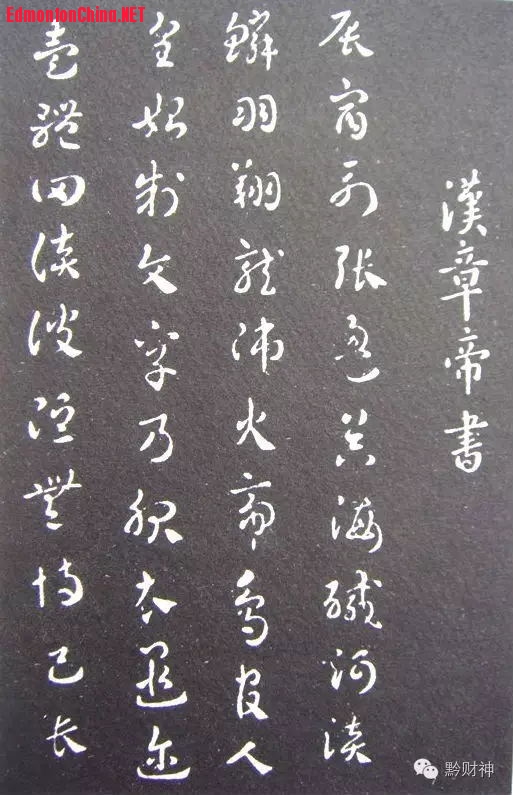 EdmontonChina.NET
漢章帝書
辰宿列張盈昃海鹹河淡
鱗羽翔龍師火帝鳥官人
皇始制文字乃服衣遐邇
壹體罔談彼短靡恃己長
黔财神